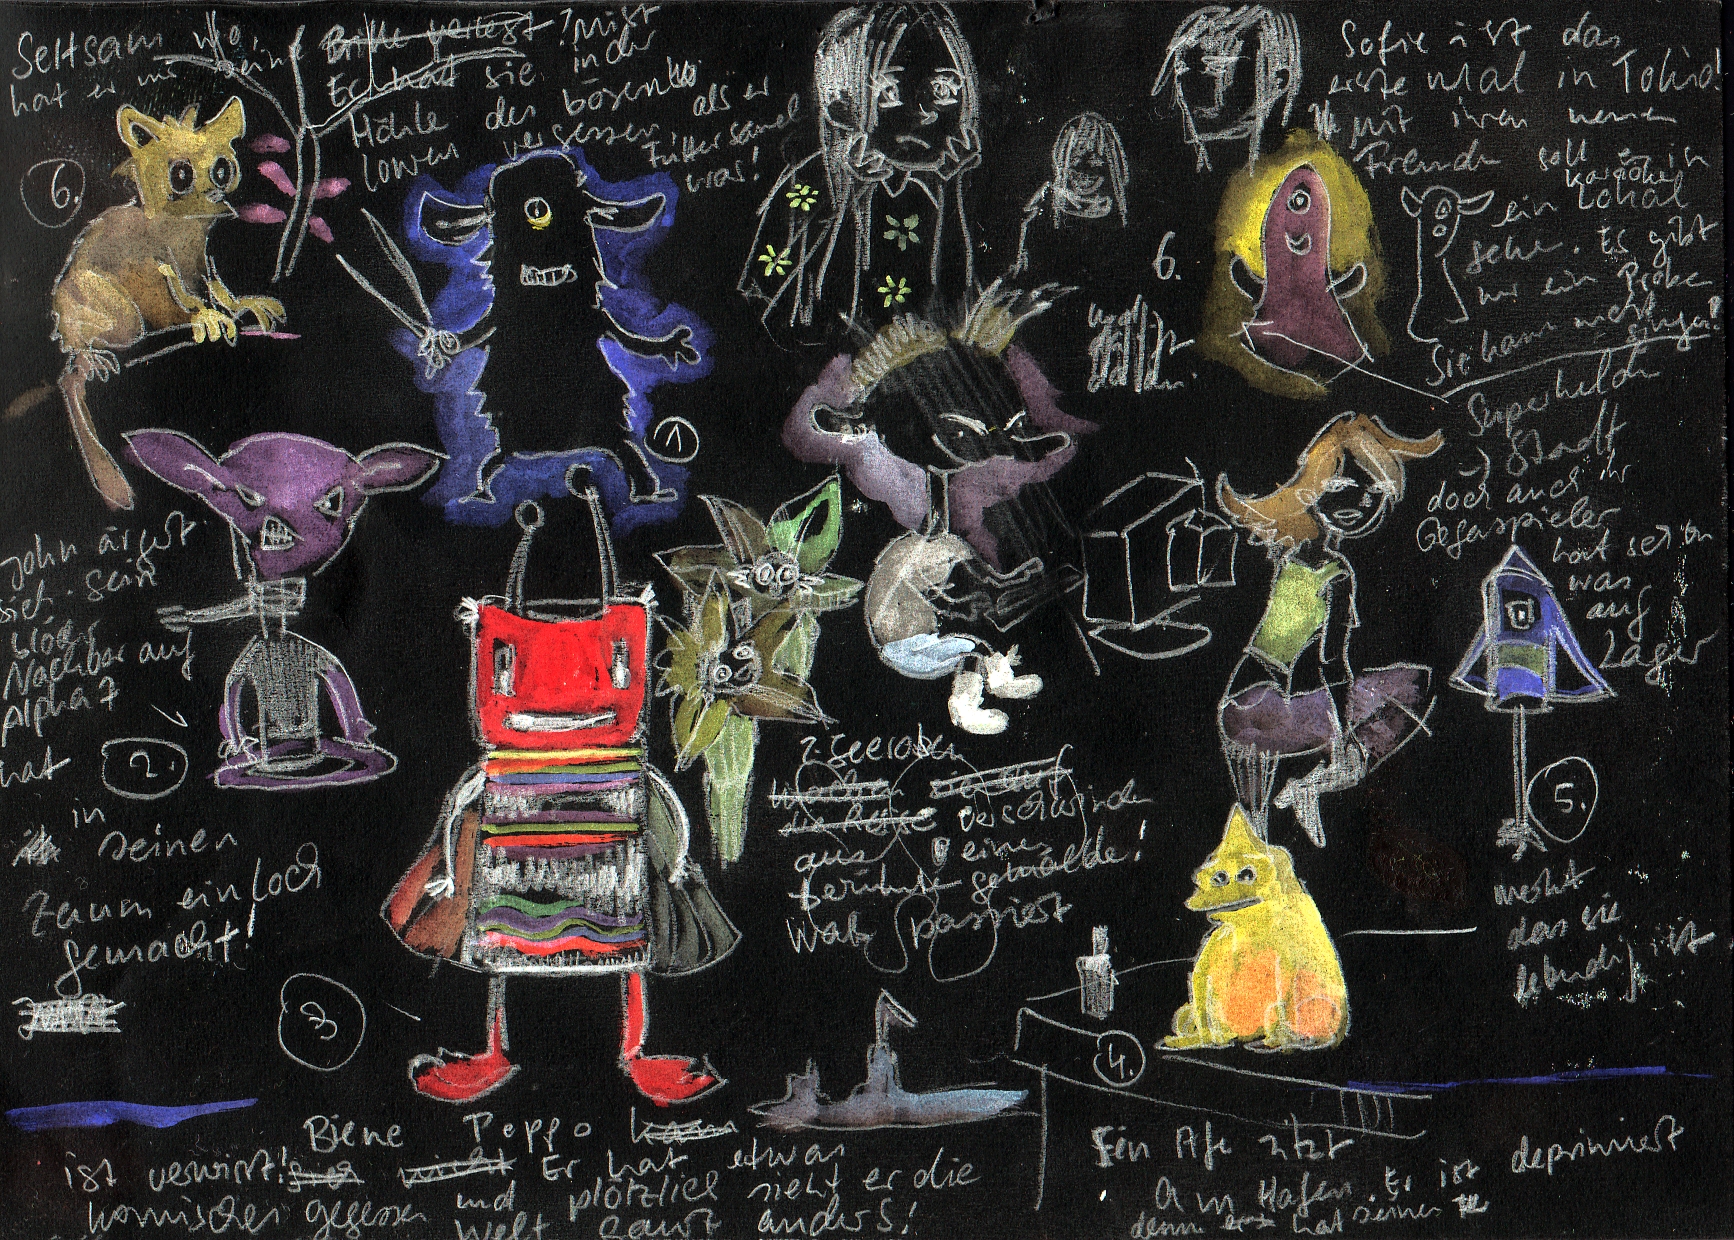 Seltsam wo,
hat er nur seine
Brille verlegt? Mist
Er hat sie in der
Höhle des bösen
Löwen vergessen, als er
Futter
war!
6.
Sofie ist das
erste Mal in Tokio!
mit ihren neuen
Freunden soll sie in
ein Karaoke
Lokal
gehen. Es gibt
nur ein Problem
Sie kann nicht
singen!
6.
1
Superheldin
Stadt
doch auch ihr
Gegenspieler
hat schon
was
auf
Lager
5.
John ärgert
sich. sein
blöder
Nachbar auf
Alpha 7
hat
2.
in
seinen
Zaun ein Loch
gemacht!
2 Seeräuber
verschwinden
aus eine
berühmte Gemälde!
Was passiert
merkt
das sie
lebendig ist
3
4.
Biene Peppo
ist verwirrt! Er hat etwas
komisches gegessen und plötzlich sieht er die
Welt ganz anders!
Ein Affe sitzt
am Hafen. Er ist deprimiert
denn er hat seinen